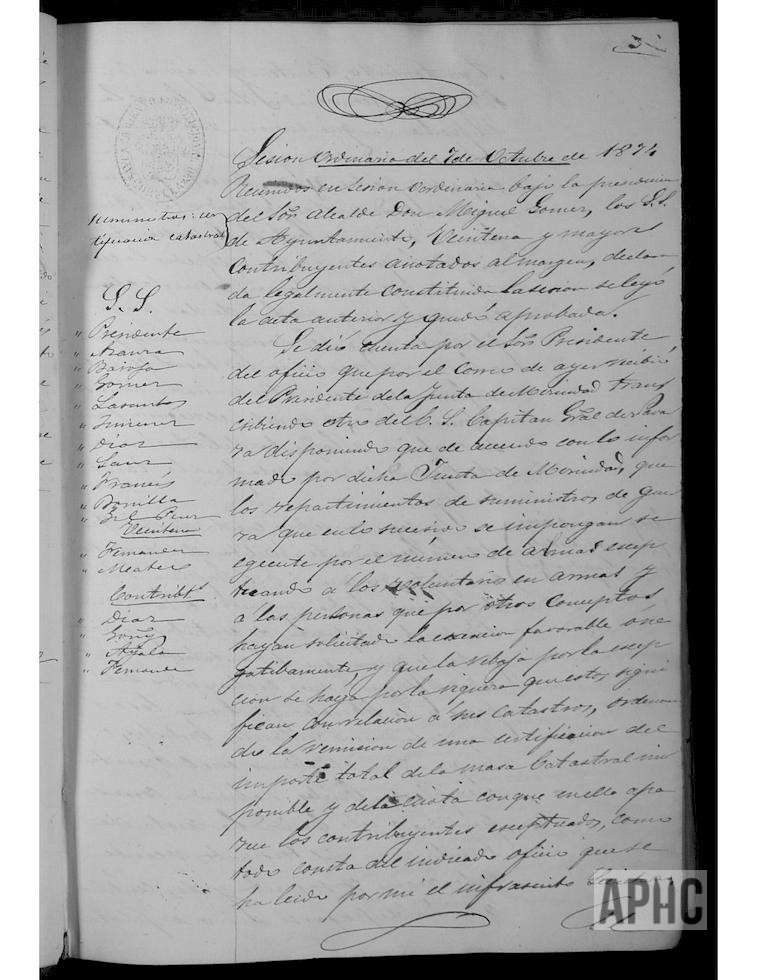 3
Sesion ordinaria del 7 de Octubre de 1874
Reunidos en sesion ordinaria bajo la presidencia
del Sor. Alcalde Don Miguel Gomez, los S.S.
de Ayuntamiento, Veintena y mayores
contribuyentes anotados al margen, declara
da legalmente constituida la sesion se leyó
la acta anterior y quedó aprobada.
Se dió cuenta por el Sor. Presidente
del oficio que por el Correo de ayer recibió
del Presidente de la Junta de Merindad trans
cribiendo otro del E. S. Capitan Gral. de Nava
rra disponiendo que de acuerdo con lo infor
mado por dicha Junta de Merindad, que
los repartimientos de suministros de gue
rra que en lo sucesivo se impongan se
egecute por el número de almas escep
tuando a los voluntarios en armas y
á las personas que por otros conceptos
hayan solicitado la esencion favorable ó ne
gatibamente, y que la rebaja por la escep
cion se haga por la riqueza que estos signi
fican con relacion á sus catastros, ordenan
do la remision de una certificacion del
importe total de la masa Catastral im
ponible y de la cuota con que en ella apa
rece los contribuyentes esceptuados, como
todo consta del indicado oficio que se
ha leido por mi el infrascrito
Suministros: cer
tificacion catastral
S. S.
" Presidente
"
" Baroja
" Gomez
" Lasantas
" Jimenez
" Diaz
" Sanz
" Francés
" Bonilla
" Gil Perez
Veintena
" Fernandez
"
Contribts.
" Diaz
" Goñi
" Ayala
" Fernande
APHC